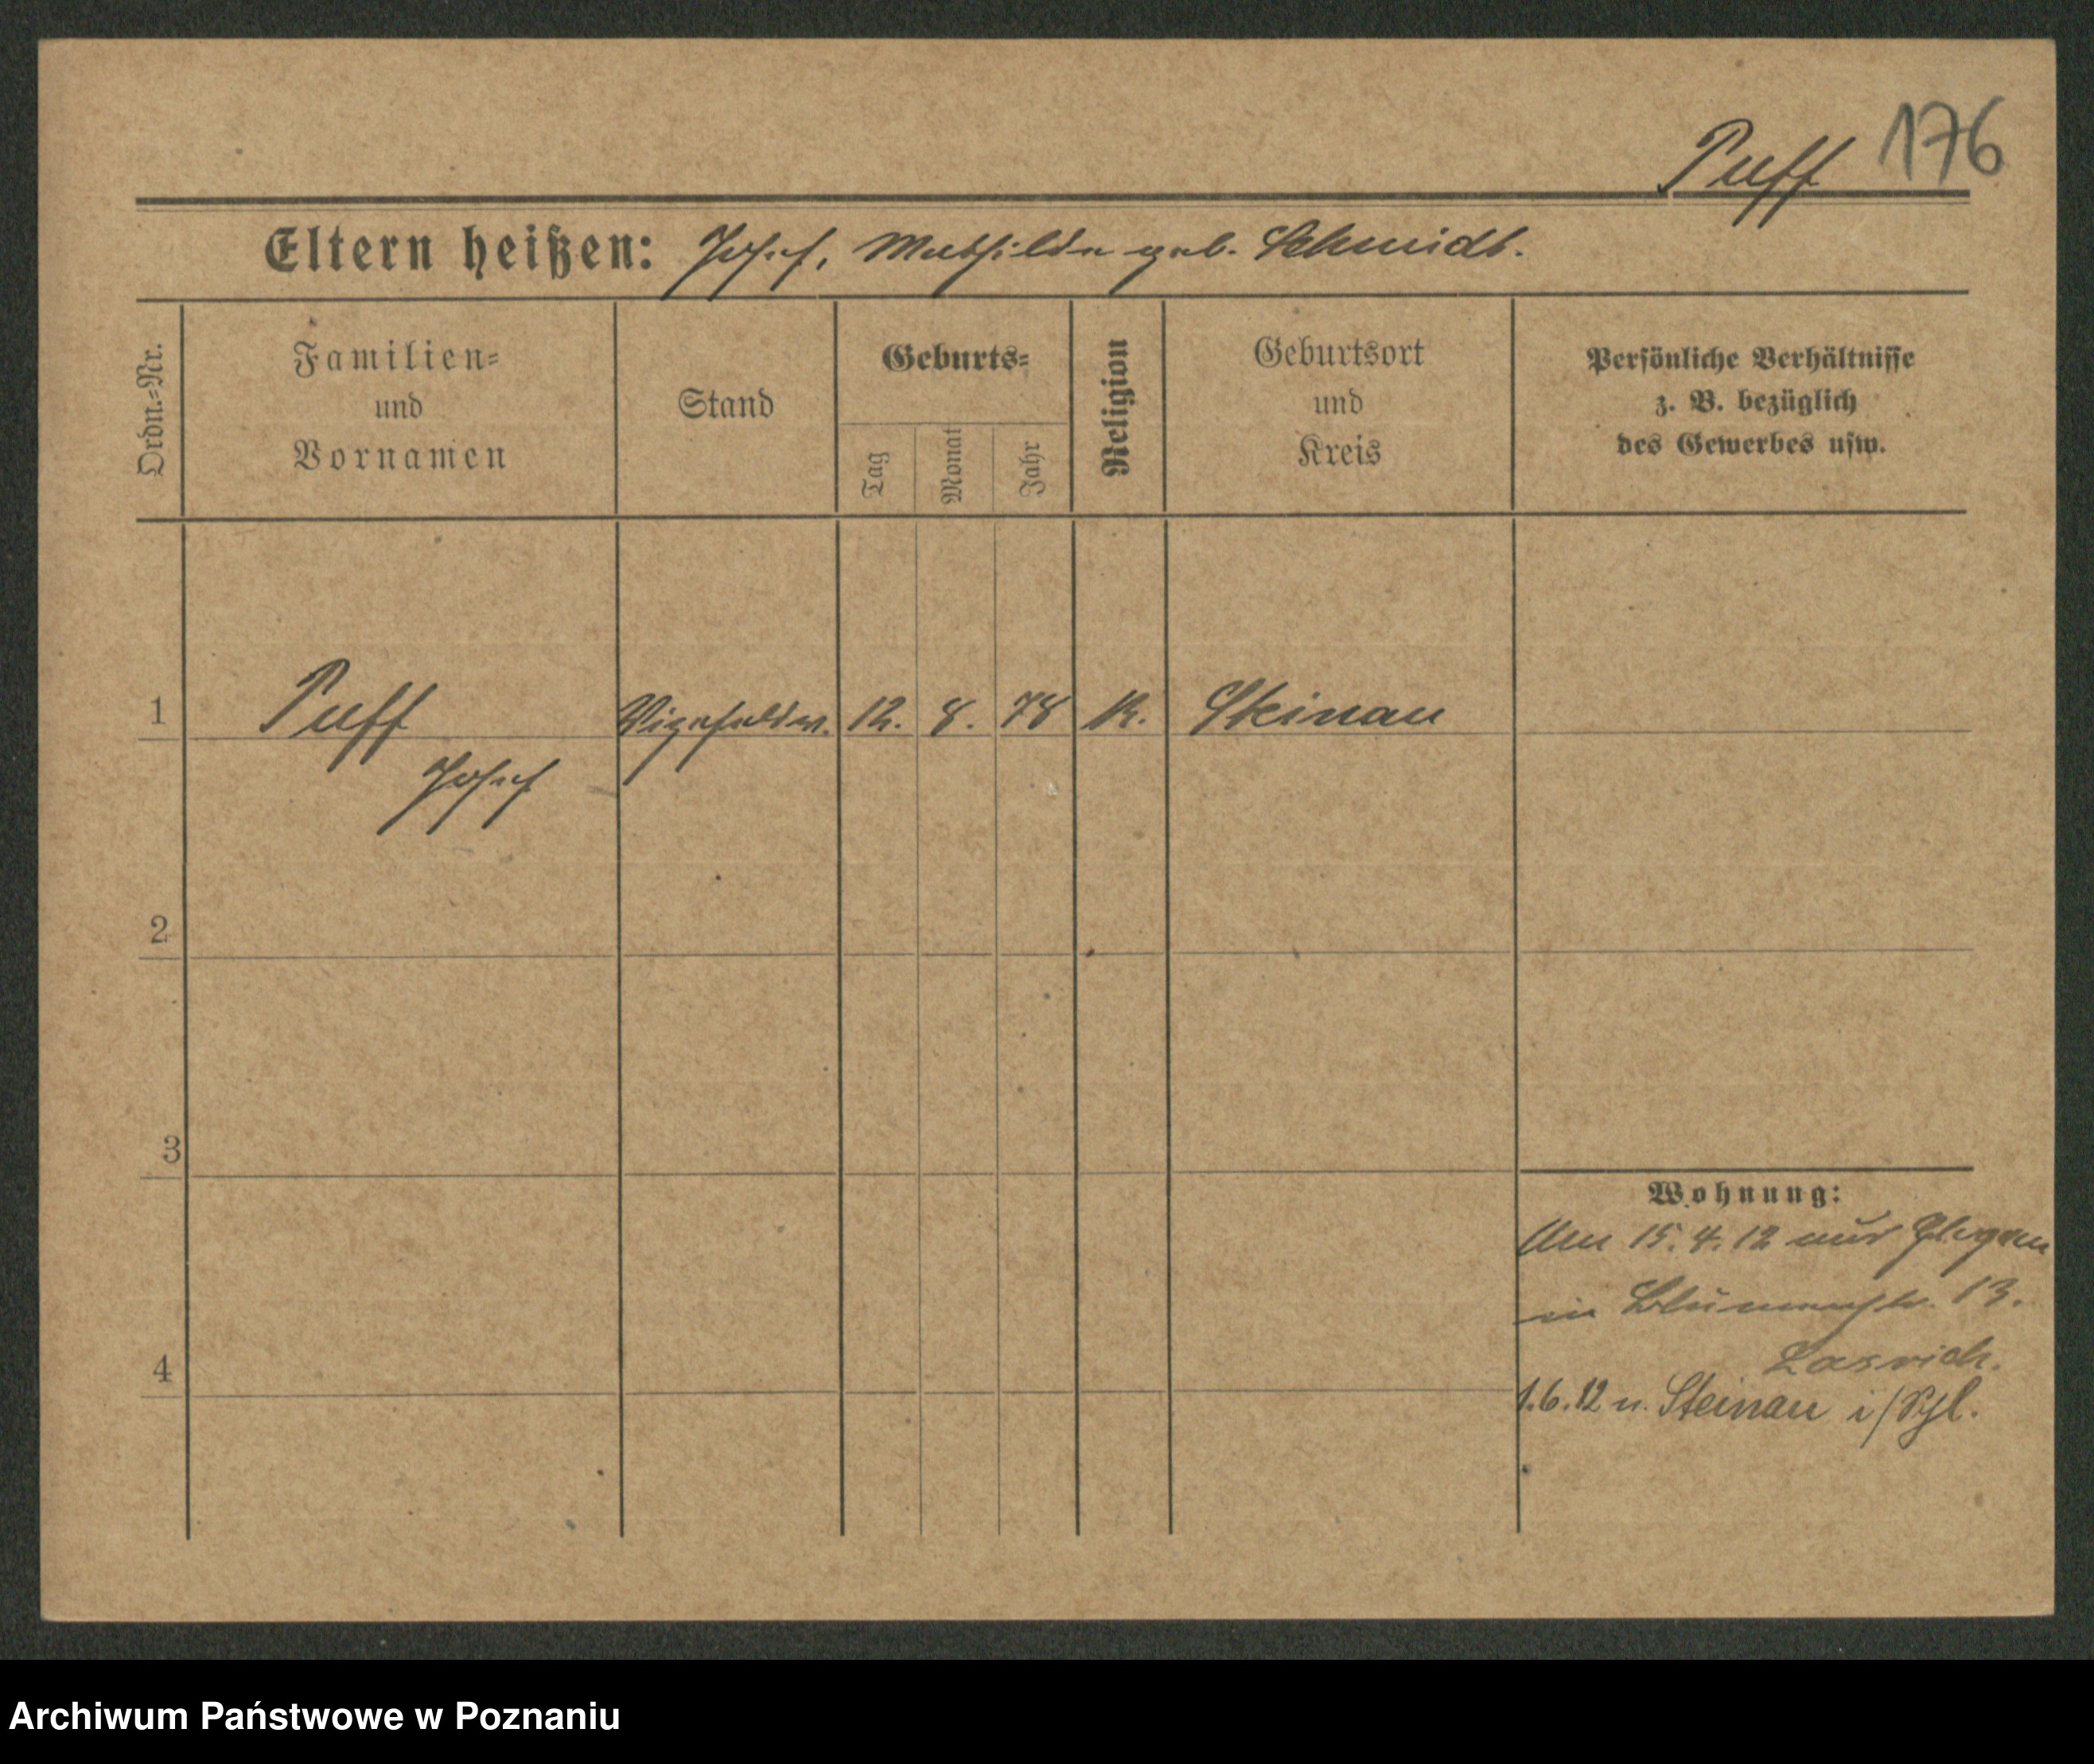 Puff 176
Eltern heißen: Josef, Mathilde geb. Schmidt.
Ordn.-Nr.
Familien-
und
Vornamen
Stand
Geburts-
Tag
Monat
Jahr
Religion
Geburtsort
und
Kreis
Persönliche Verhältnisse
z. B. bezüglich
des Gewerbes usw.
1 Puff 12. 8. 78 K. Steinau
Josef
2
3
4
Wohnung:
Am 15. 4. 12 aus Glogau
in Blumenstr. 13.
1.6.12 n. Steinau i/Schl.
Archiwum Państwowe w Poznaniu